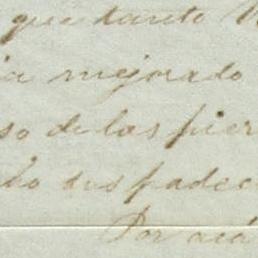 que tanto
ia mejorado
so de las pier
cho sus padec
Por acá